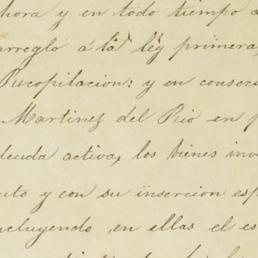 ahora y en todo tiempo
arreglo á la ley primera,
Recopilacion: y en consec
Martinez del Rio en p
deuda activa, los bienes inv
uto y con su insercion esp
cluyendo en ellas el es